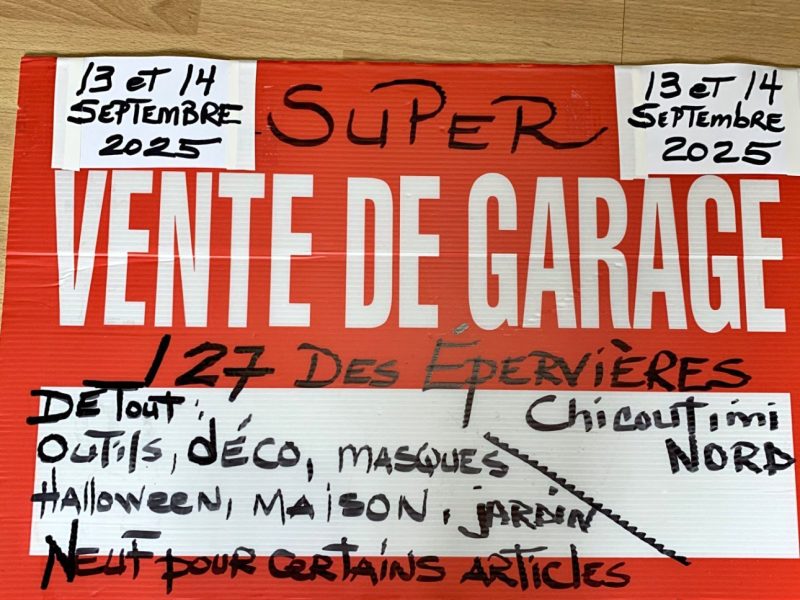 13 et 14
SEPTEMBRE
2025
SUPER
13 et 14
SEPTEMbRE
2025
VENTE DE GARAGE
127 DES ÉPERVIÈRES
DE TOUT :
Chicoutimi
NORD
OUTILS, DÉCO, MASQUES
HALLOWEEN, MAISON, JARDIN
NEUF POUR CERTAINS ARTICLES